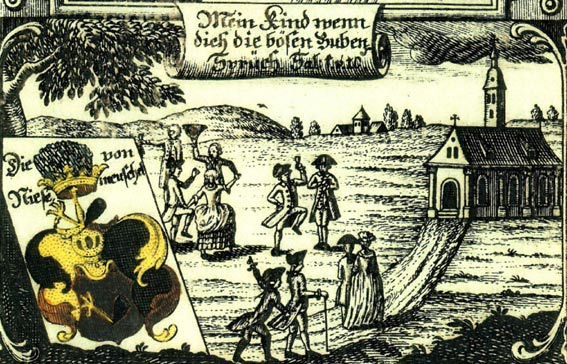 Mein Kind wenn
dich die bösen Buben
Sprüch
Die von
Niese meuschel